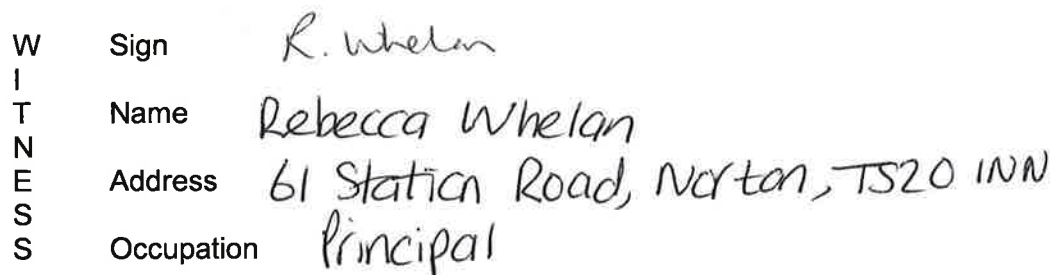 W Sign R. Whelan
I
T Name Rebecca Whelan
N
E Address 61 Station Road, Norton, TS20 1NN
S
S Occupation Principal